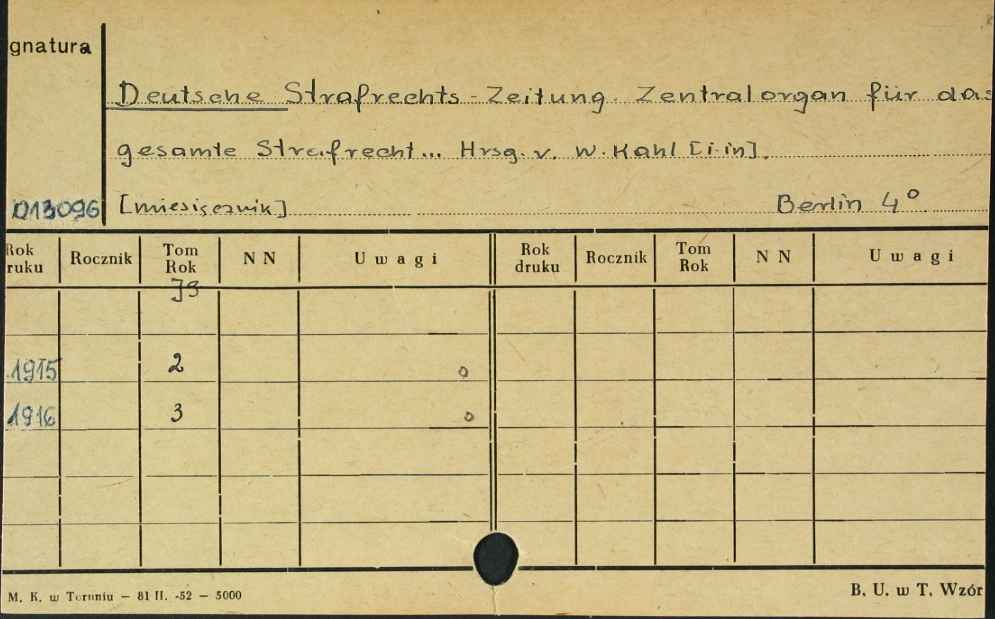 gnatura
Deutsche Strafrechts-Zeitung. Zentralorgan für das
gesamte Strafrecht... Hrsg. v. W. Kahl [i in].
013096 [miesięcznik] Berlin 4°.
Rok druku Rocznik Tom Rok N N Uwagi Rok druku Rocznik Tom Rok N N Uwagi
Jg
1915 2 o
1916 3 o
M. K. w Toruniu — 81 II. -52 — 5000 B. U. w T. Wzór